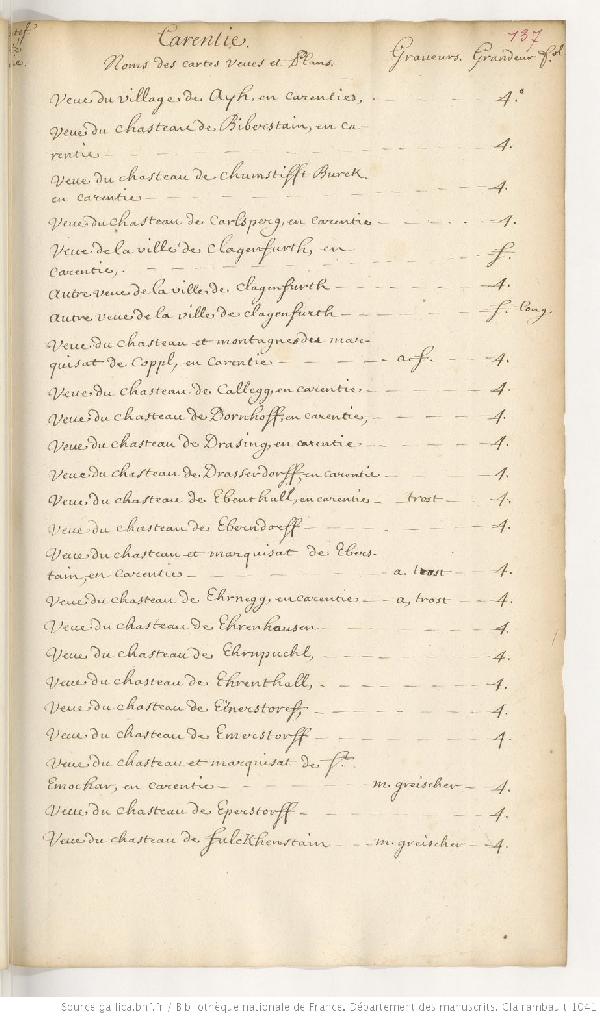 137
Carentie.
Noms des cartes veues et Plans. Graveurs. Grandeur
Veue du village de Ayh, en carenties, 4.º
Veue du chasteau de Biberstain, en ca-
rentie 4.
Veue du chasteau de Chumstifft Burck
en carentie 4.
Veue du chasteau de Carlsperg, en carentie 4.
Veue de la ville de Clagenfurth, en
carentie, f.
Autre veue de la ville de Clagenfurth 4.
Autre veue de la ville de clagenfurth f. long.
Veue du chasteau et montagnes du mar-
quisat de Coppl, en Carentie a.f. 4.
Veue du chasteau de Callegg, en carentie 4.
Veue du chasteau de Dornhoff, en carentie, 4.
Veue du chasteau de Drasing, en carentie 4.
Veue du chasteau de Drasserdorff, en carentie 4.
Veue du chasteau de Ebenthall, en carentie trost 4.
Veue du chasteau de Eberndorff 4.
Veue du chasteau et marquisat de Ebers-
tain, en Carentie a, trost 4.
Veue du chasteau de Ehrnegg, en carentie a, trost 4.
Veue du chasteau de Ehrenhausen 4.
Veue du chasteau de Ehrnpuchl, 4.
Veue du chasteau de Ehrenthall, 4.
Veue du chasteau de 4.
Veue du chasteau de Emerstorff 4.
Veue du chasteau et marquisat de St.
Emochar, en carentie m. greischer 4.
Veue du chasteau de Eperstorff 4.
Veue du chasteau de fulckhenstain m. greischer 4.
Source gallica.bnf.fr / Bibliothèque nationale de France. Département des manuscrits. Clairambault 1041